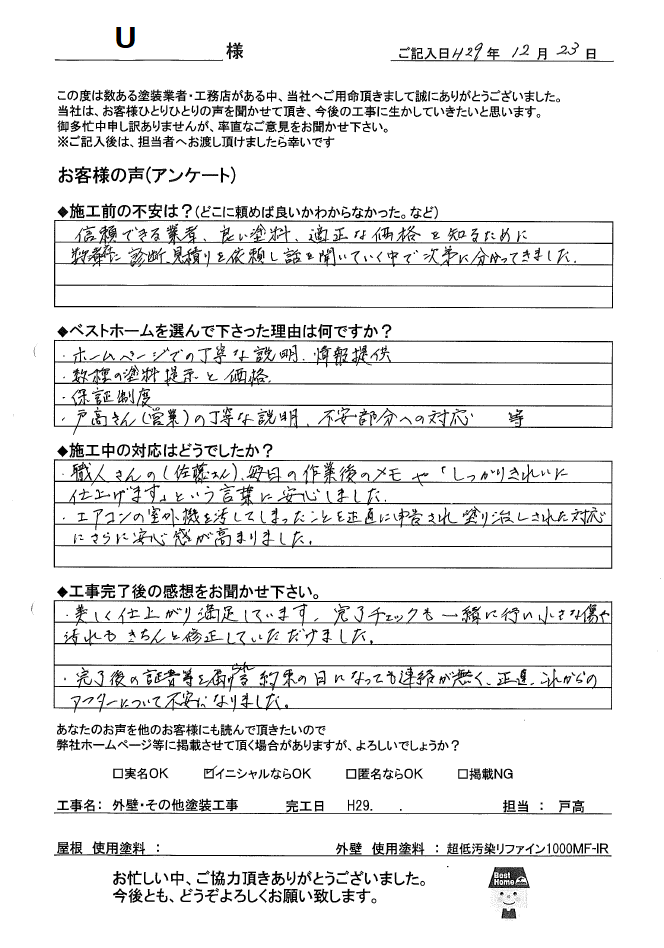 U 様
ご記入日H29年 12月 23日
この度は数ある塗装業者・工務店がある中、当社へご用命頂きまして誠にありがとうございました。
当社は、お客様ひとりひとりの声を聞かせて頂き、今後の工事に生かしていきたいと思います。
御多忙中申し訳ありませんが、率直なご意見をお聞かせ下さい。
※ご記入後は、担当者へお渡し頂けましたら幸いです
お客様の声(アンケート)
◆施工前の不安は?(どこに頼めば良いかわからなかった。など)
信頼できる業者、良い塗料、適正な価格を知るために
診断、見積りを依頼し話を聞いていく中で次第に分かってきました。
◆ベストホームを選んで下さった理由は何ですか?
・ホームページでの丁寧な説明、情報提供
・数種の塗料提示と価格
・保証制度
・戸高さん(営業)の丁寧な説明、不安部分への対応 等
◆施工中の対応はどうでしたか?
・職人さんの(佐藤さん)、毎日の作業後のメモや「しっかりきれいに
仕上げます」という言葉に安心しました。
・エアコンの室外機を汚してしまったことを正直に申告され塗り治しされた対応
にさらに安心感が高まりました。
◆工事完了後の感想をお聞かせ下さい。
・美しく仕上がり満足しています。完了チェックも一緒に行い小さな傷や
汚れもきちんと修正していただけました。
・完了後の証書等を 約束の日になっても連絡が無く、正直、これからの
アフターについて不安になりました。
あなたのお声を他のお客様にも読んで頂きたいので
弊社ホームページ等に掲載させて頂く場合がありますが、よろしいでしょうか?
□実名OK ☑イニシャルならOK □匿名ならOK □掲載NG
工事名: 外壁・その他塗装工事 完工日 H29. . 担当 : 戸高
屋根 使用塗料 : 外壁 使用塗料 : 超低汚染リファイン1000MF-IR
お忙しい中、ご協力頂きありがとうございました。
今後とも、どうぞよろしくお願い致します。
Best Home